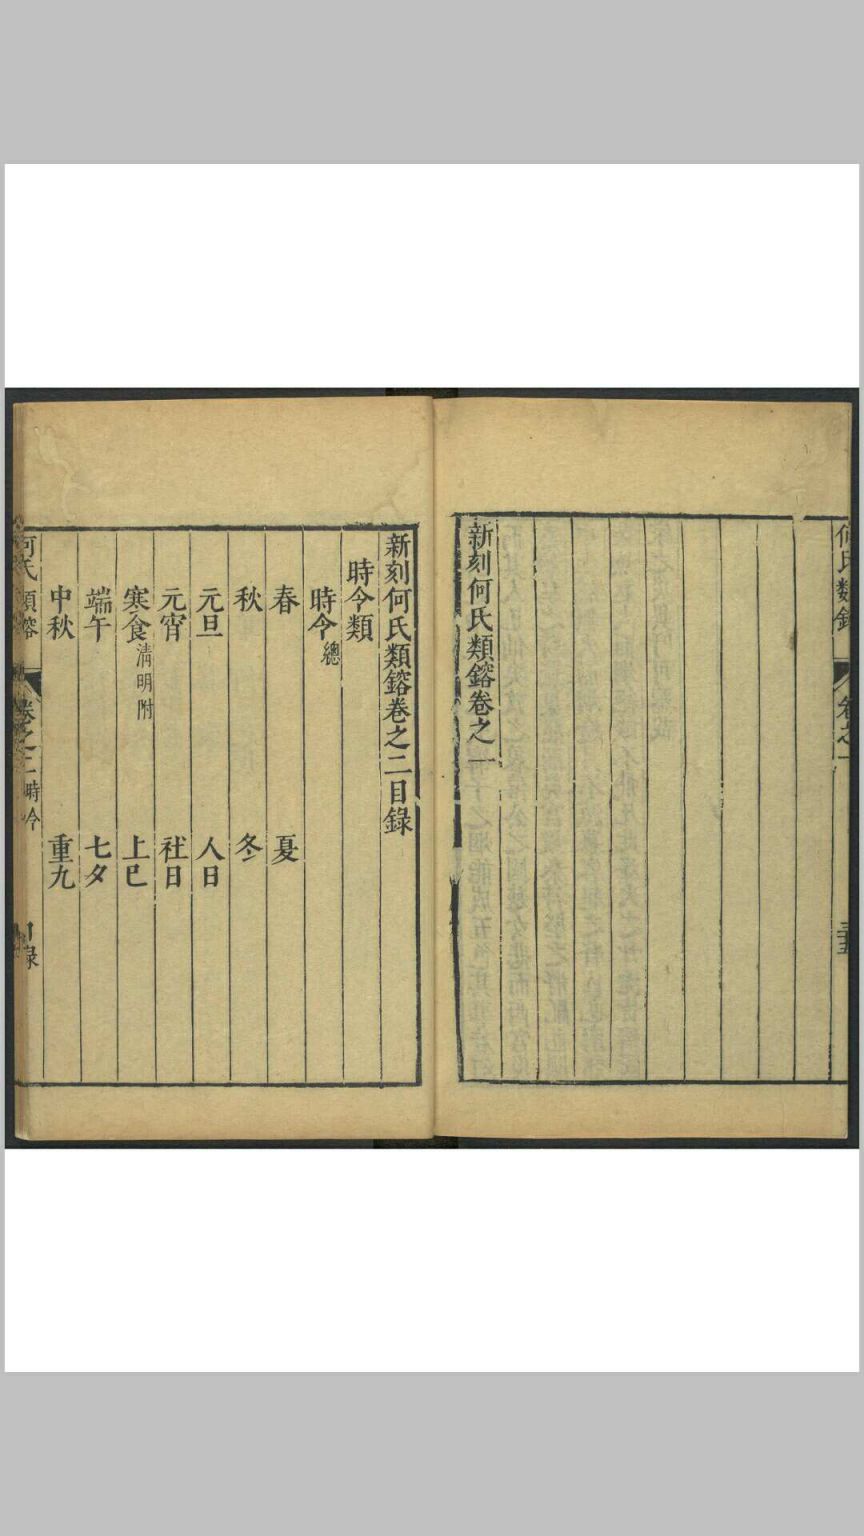 何氏類鎔
卷之一
三十五
新刻何氏類鎔卷之一
新刻何氏類鎔卷之二目錄
時令類
時令總
春 夏
秋 冬
元旦 人日
元宵 社日
寒食清明附 上巳
端午 七夕
中秋 重九
何氏類鎔
卷之二時令
目錄